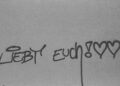 LiEBT EUCH!♡♡